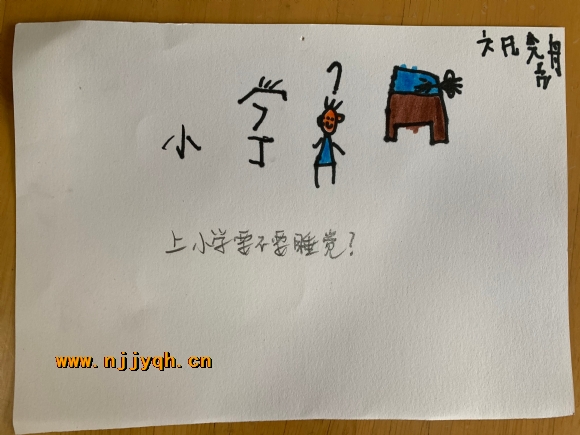 小 学 ?
上小学要不要睡觉?
www.njjyqh.cn